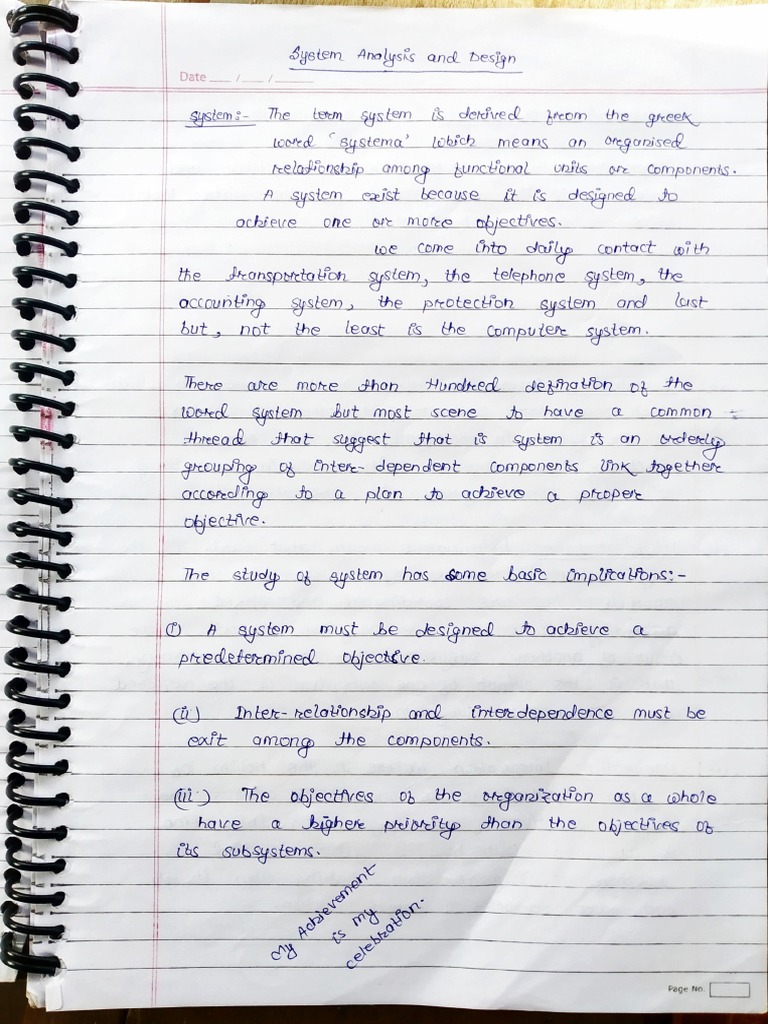 System Analysis and Design
Date ___ / ___ / _____
System:- The term system is derived from the greek
word 'systema' which means an organised
relationship among functional units or components.
A system exist because it is designed to
achieve one or more objectives.
we come into daily contact with
the transportation system, the telephone system, the
accounting system, the protection system and last
but, not the least is the computer system.
There are more than Hundred defination of the
word system but most scene to have a common
thread that suggest that is system is an orderly
grouping of inter-dependent components link together
according to a plan to achieve a proper
objective.
The study of system has some basic implications:-
(i) A system must be designed to achieve a
predetermined objective.
(ii) Inter-relationship and interdependence must be
exit among the components.
(iii) The objectives of the organization as a whole
have a higher priority than the objectives of
its subsystems.
My Achievement
is my
celebration.
Page No.